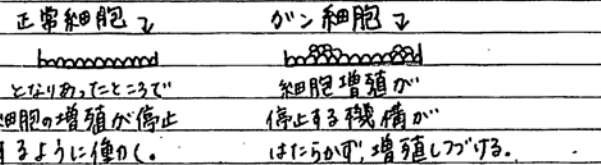 正常細胞 ガン細胞
となりあったところで
細胞の増殖が停止
するように働く。
細胞増殖が
停止する機構が
はたらかず、増殖しつづける。